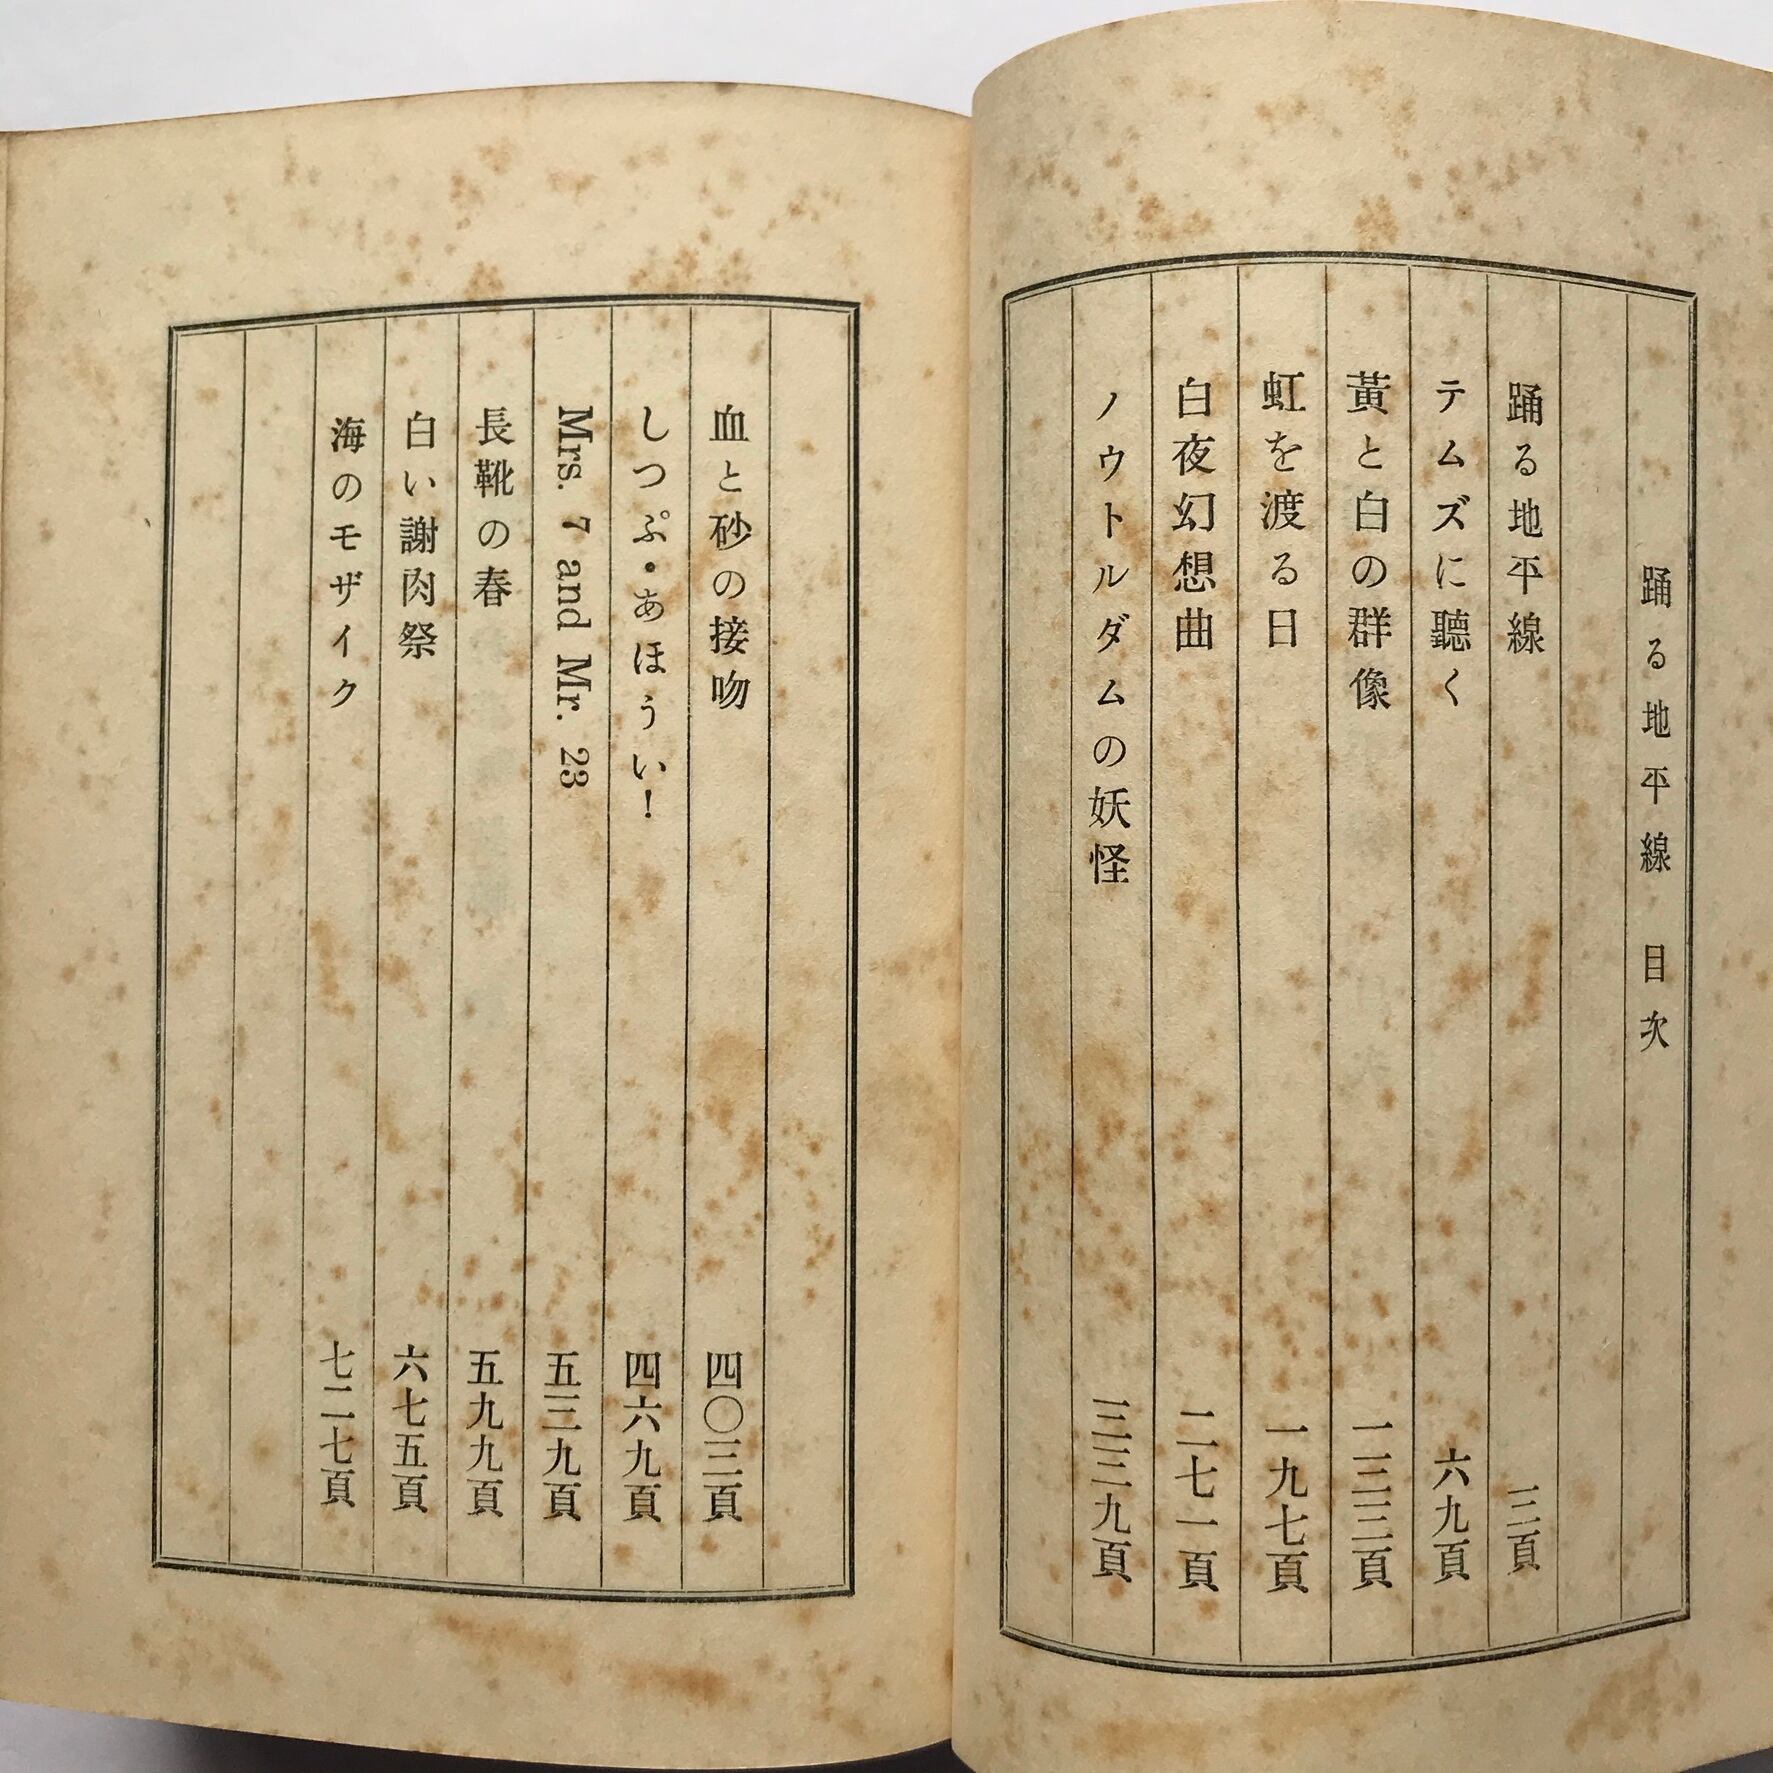 踊る地平線 目次
踊る地平線 三頁
テムズに聽く 六九頁
黃と白の群像 一三三頁
虹を渡る日 一九七頁
白夜幻想曲 二七一頁
ノウトルダムの妖怪 三三九頁
血と砂の接吻 四〇三頁
しつぷ・あほうい! 四六九頁
Mrs. 7 and Mr. 23 五三九頁
長靴の春 五九九頁
白い謝肉祭 六七五頁
海のモザイク 七二七頁